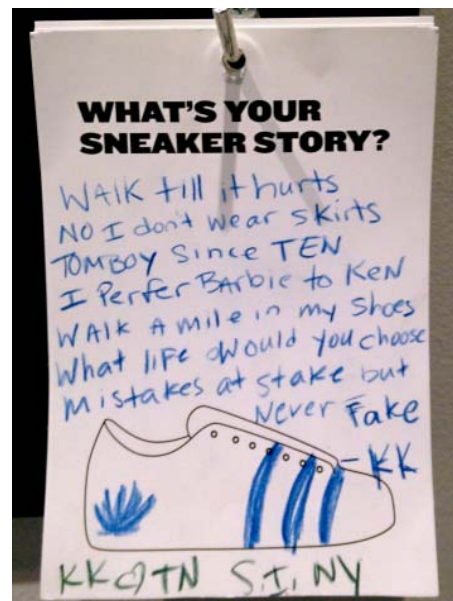 WHAT'S YOUR
SNEAKER STORY?
WAlK till it hurts
NO I don't wear skirts
TOMBOY Since TEN
I Perfer BArbie to KeN
WAlk A mile in my Shoes
What life would you choose
Mistakes at stake but
Never Fake
- KK
KK♡TN S.I, NY